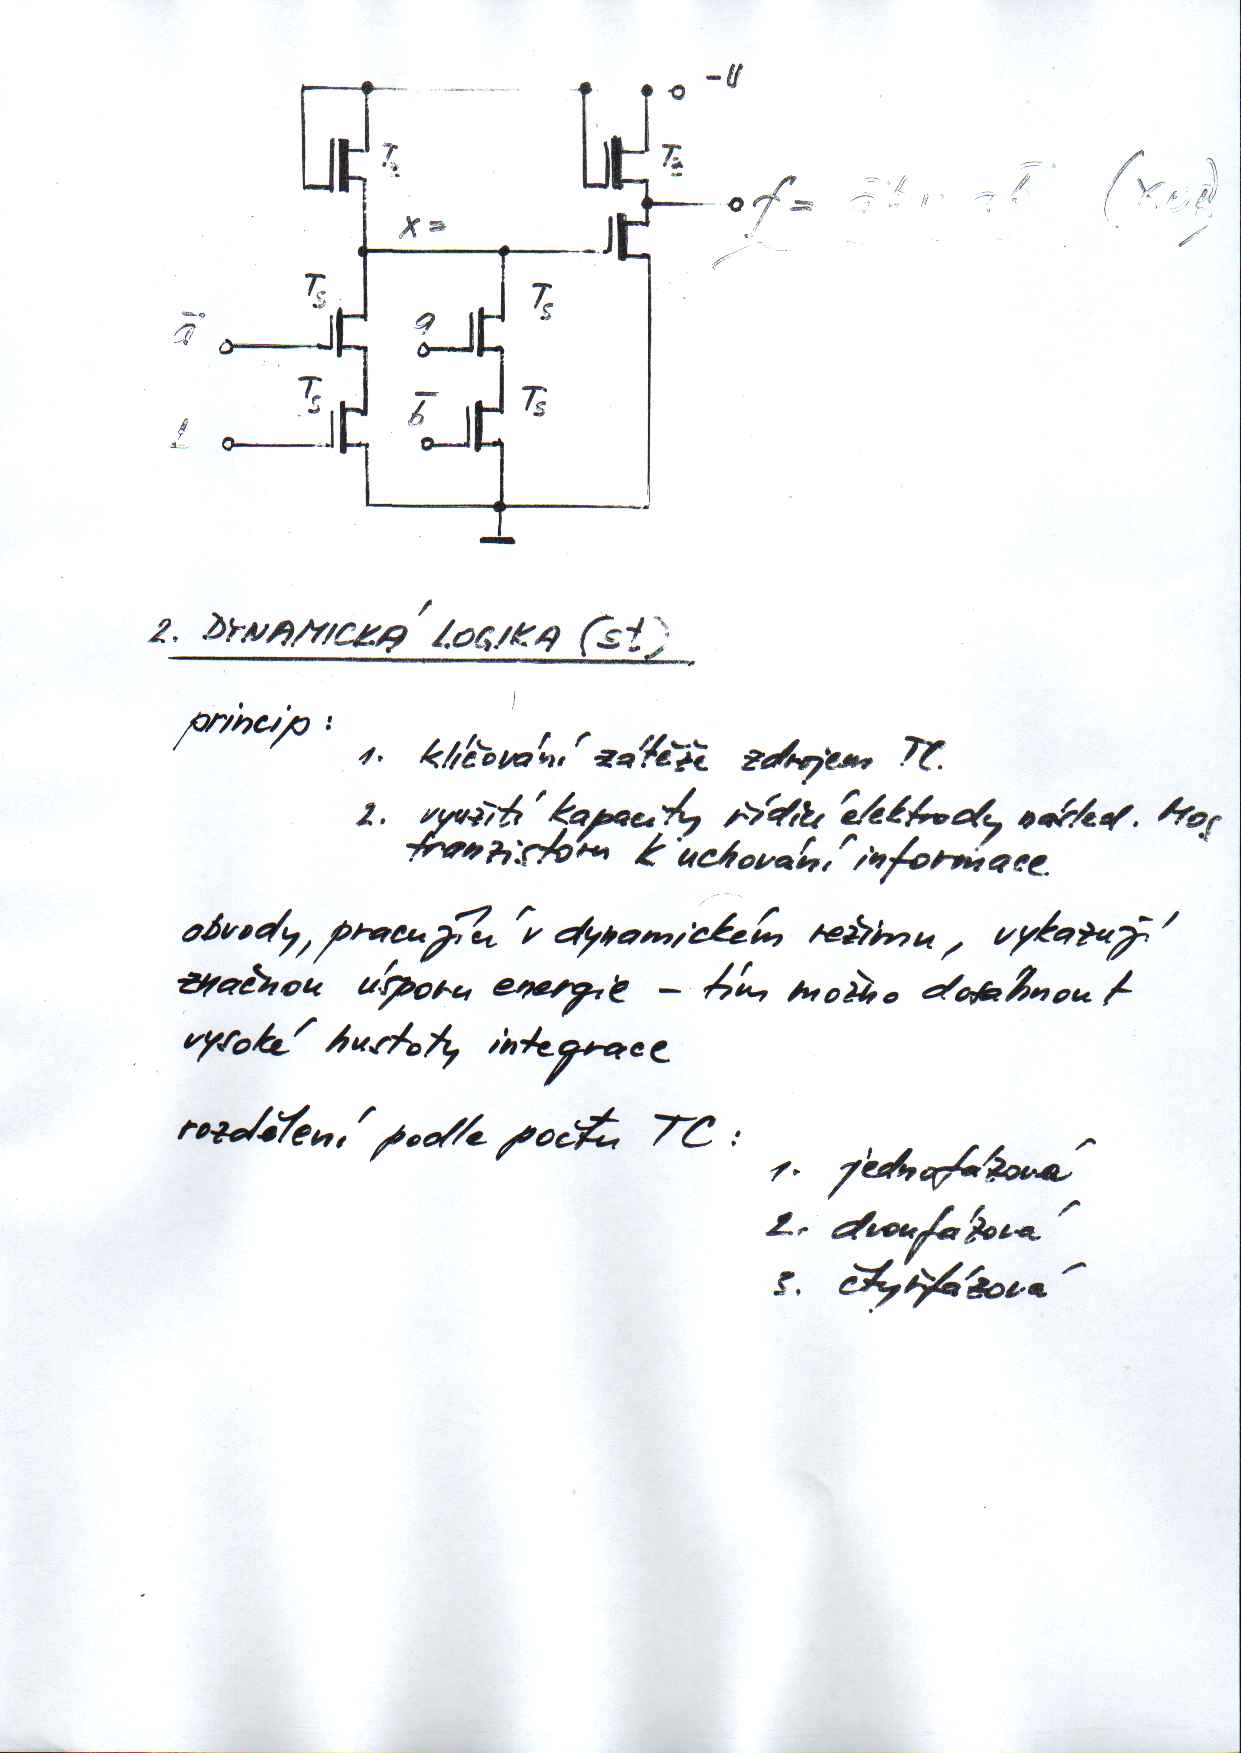 -U
T₂
f =
x =
T_S
T_S
a
T_S
b̄
T_S
2. DYNAMICKÁ LOGIKA (st)
princip:
1. klíčování zátěže zdrojem TC.
2. využití kapacity řídící elektrody násled. MOS
tranzistoru k uchování informace.
obvody, pracující v dynamickém režimu, vykazují
značnou úsporu energie – tím možno dosáhnout
vysoké hustoty integrace
rozdělení podle počtu TC:
1. jednofázová
2. dvoufázová
3. čtyřfázová